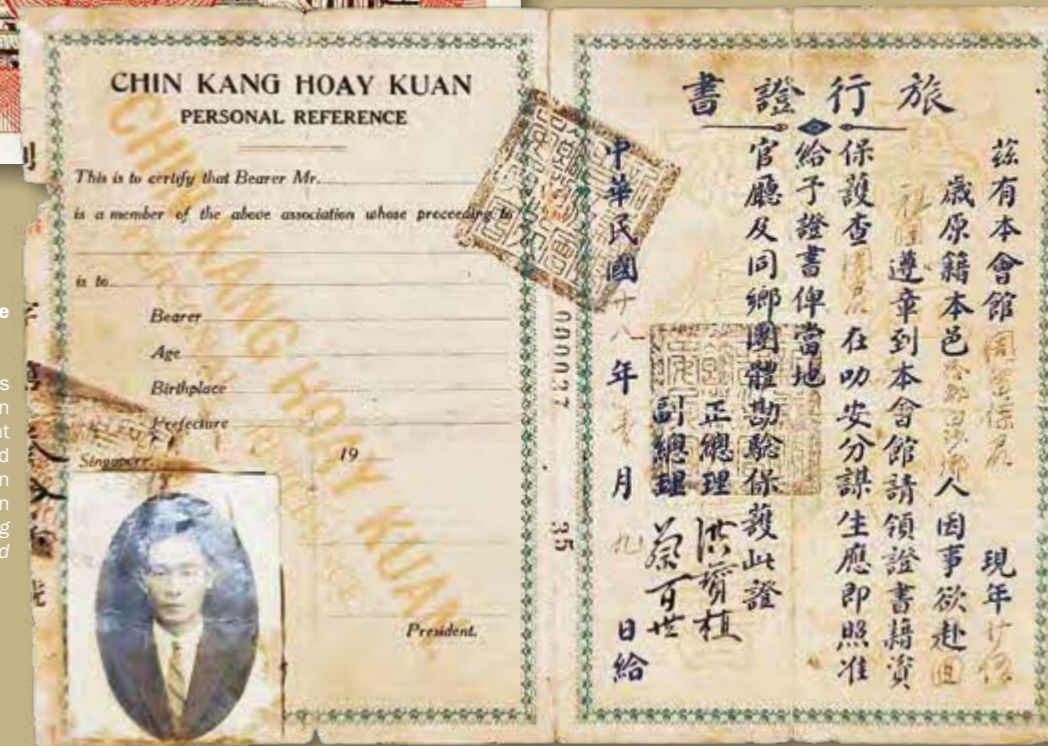 CHIN KANG HOAY KUAN
PERSONAL REFERENCE
This is to certify that Bearer Mr.
is a member of the above association whose proceeding to
is to
Bearer
Age
Birthplace
Prefecture
Singapore 19
President.
CHIN KANG HOAY KUAN
000027
35
旅行證書
茲有本會館 現年廿
歲原籍本邑 人因事欲赴
遵章到本會館請領證書藉資
保護查 在叻安分謀生應即照准
給予證書俾當地
官廳及同鄉團體勘驗保護此證
正總理 洪寶植
副總理 蔡百世
中華民國廿八年 月九日給